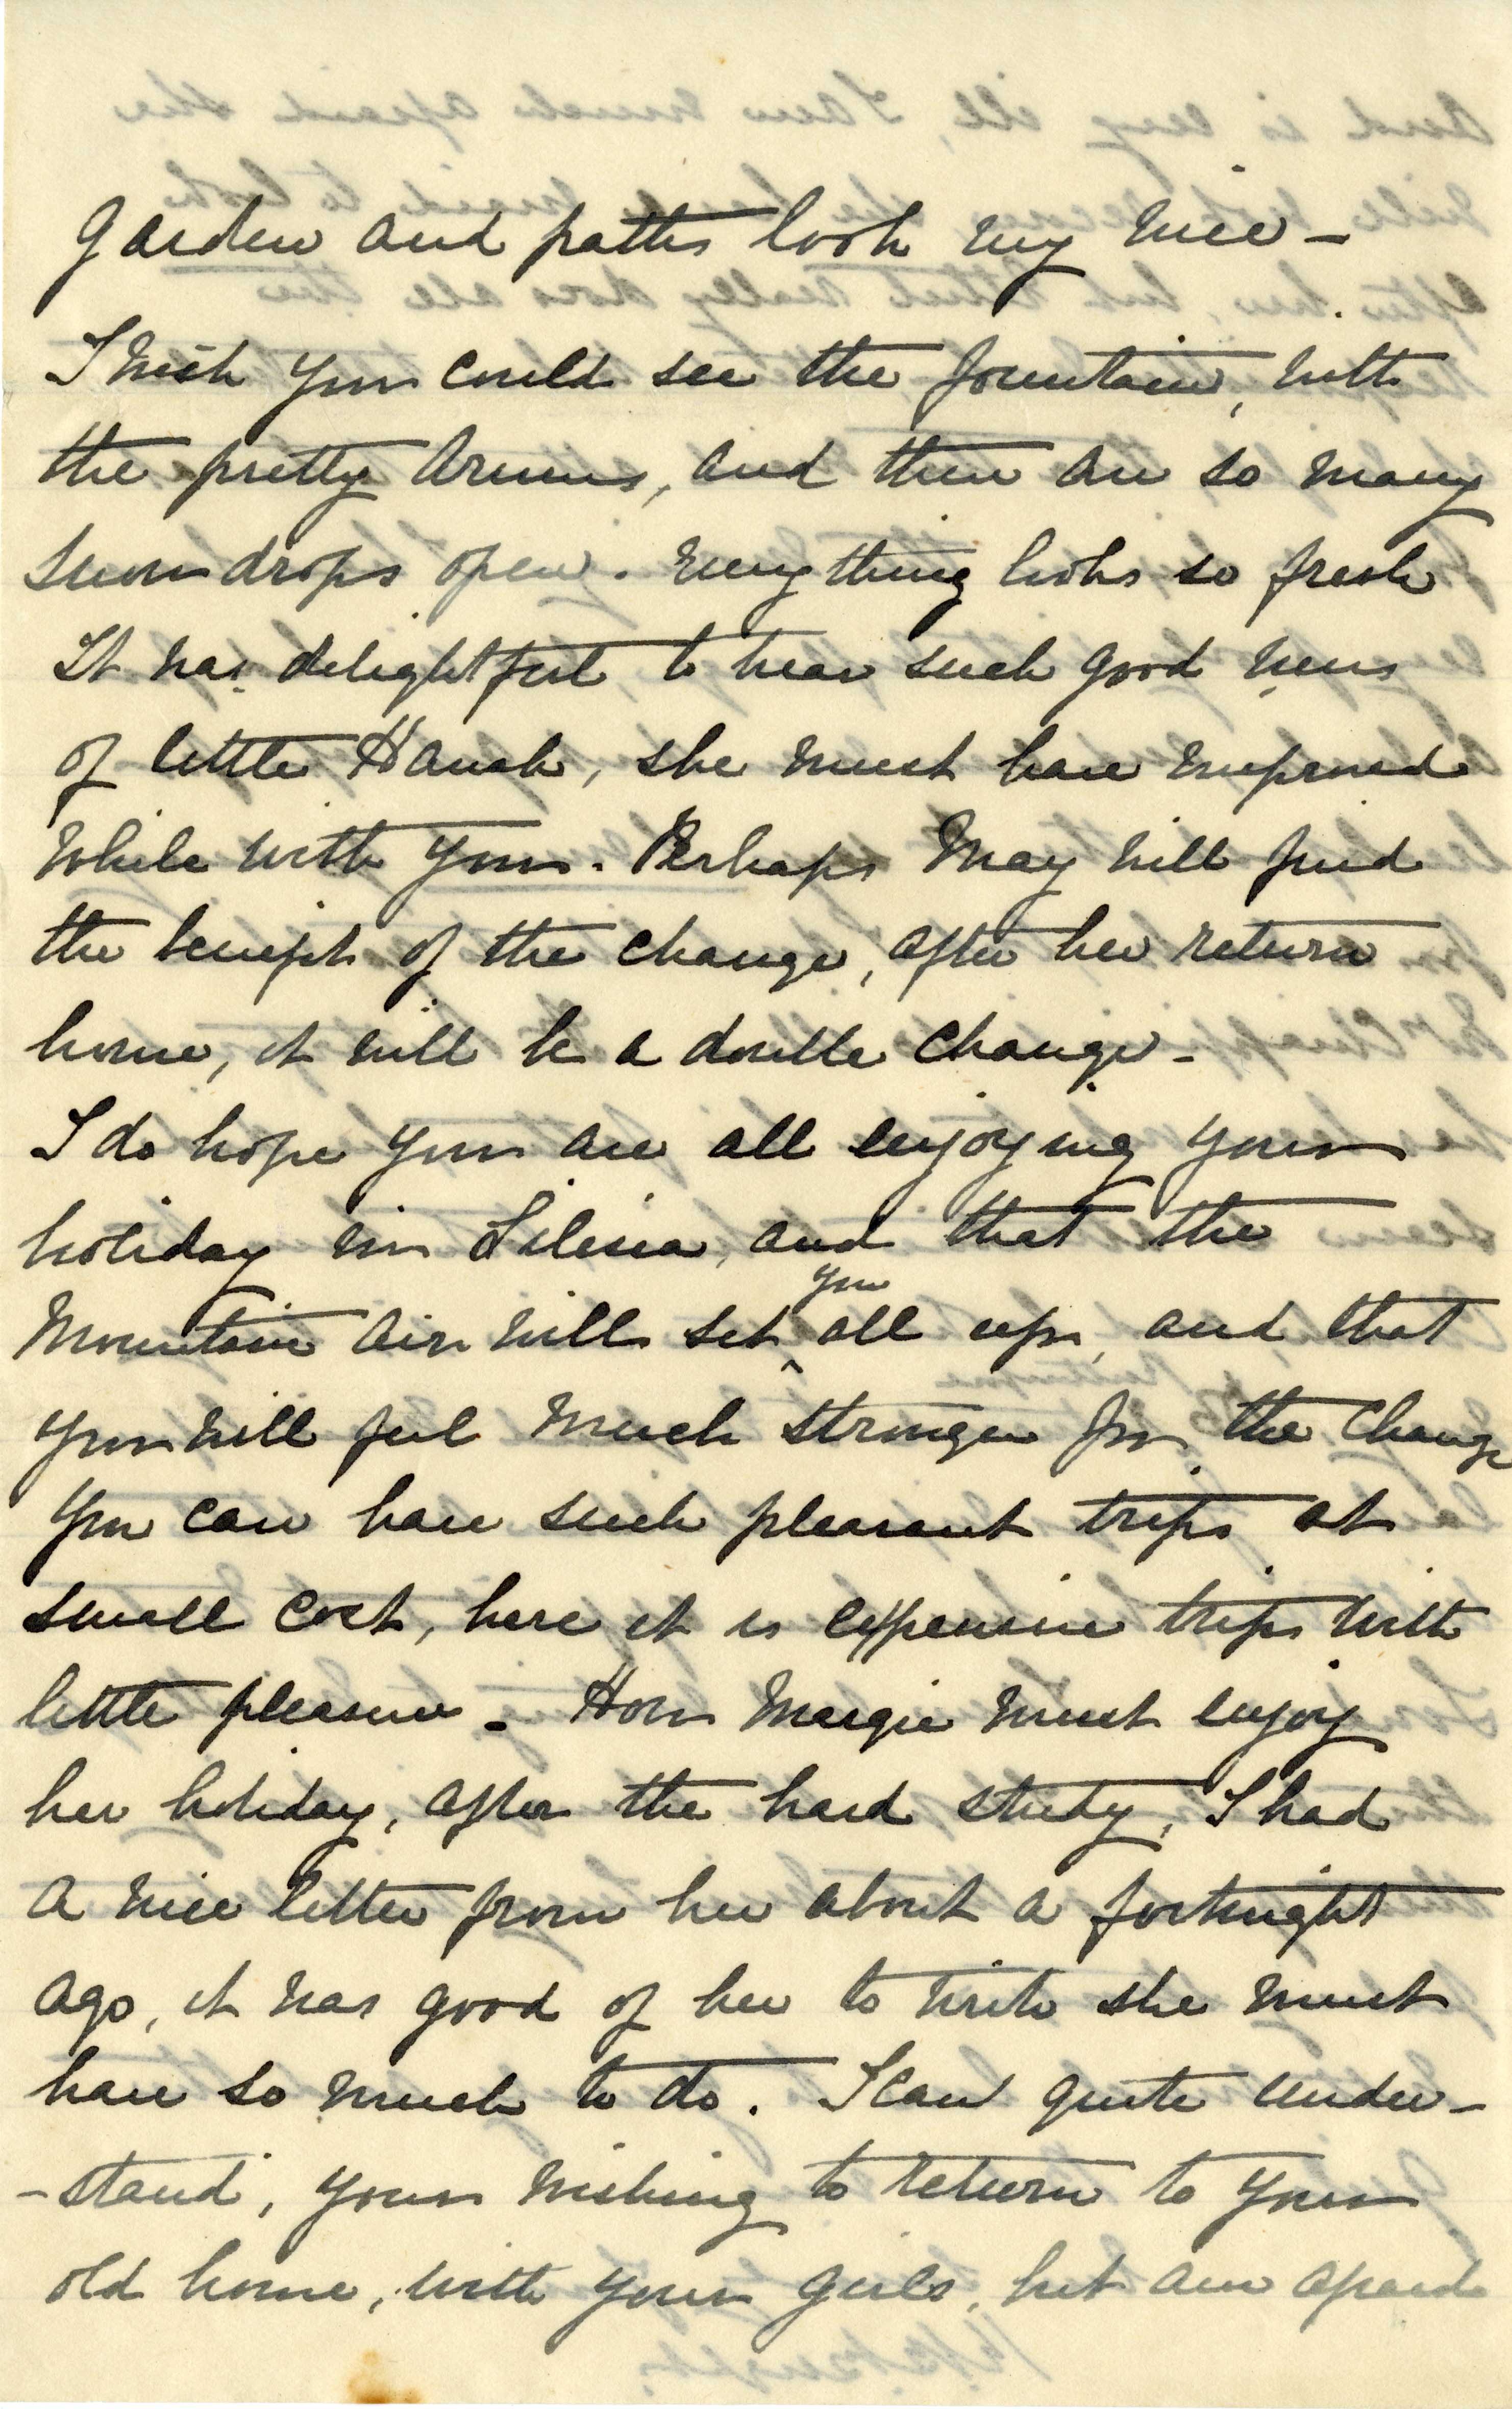 garden and paths look very nice -
I wish you could see the fountain, with
the pretty Arums, and there are so many
snowdrops open. Everything looks so fresh
It was delightful to hear such good news
of little Hansh, she must have improved
while with you. Perhaps May will find
the benefit of the change, after her return
home, it will be a double change -
I do hope you are all enjoying your
holiday in Silesia, and that the
Mountain air will set you all up, and that
you will feel much stronger for the change
You can have such pleasant trips at
small cost, here it is expensive trips with
little pleasure - How Margie must enjoy
her holiday, after the hard study, I had
a nice letter from her about a fortnight
ago, it was good of her to write she must
have so much to do. I can quite under-
-stand, your wishing to return to your
old home, with your girls, but am afraid